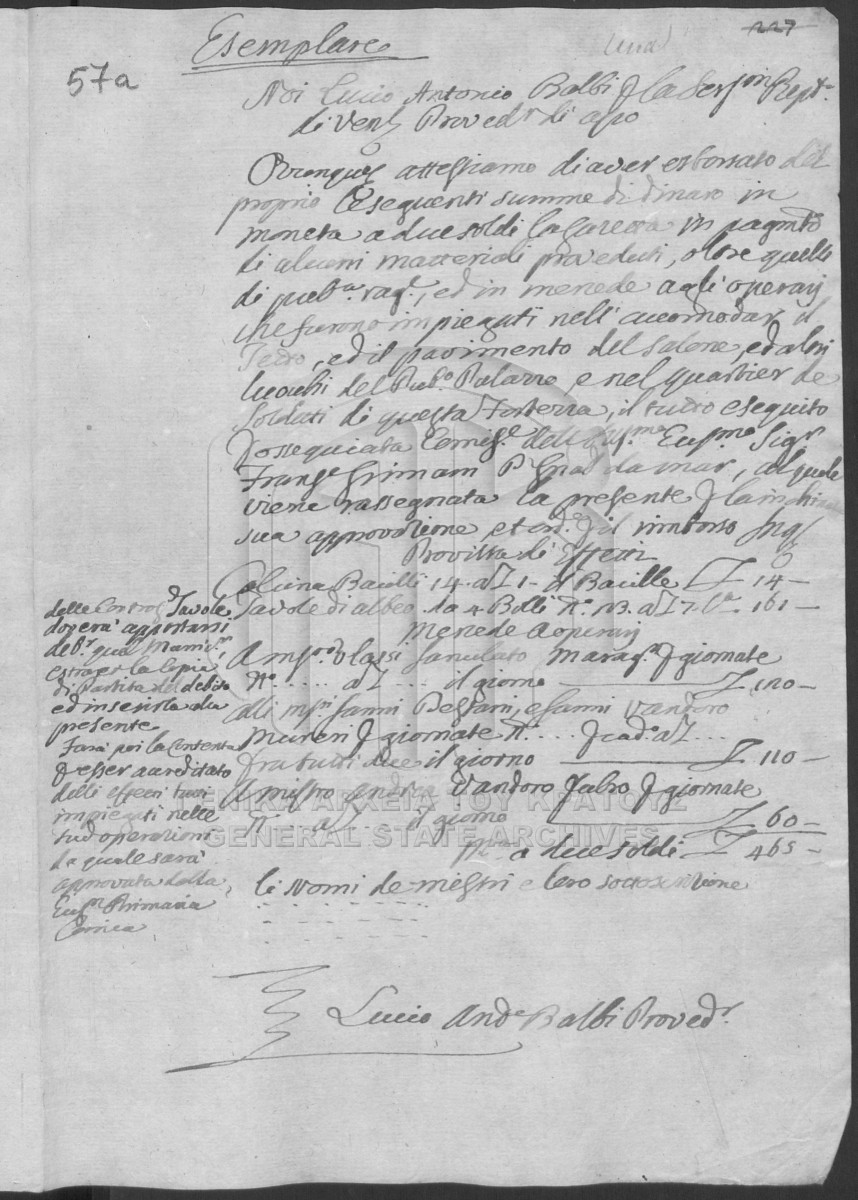 Esemplare
227
57a
Noi Lucio Antonio Balbi p la Ser.ma Rep.
di Ven.a Proved.r di Asso
attestiamo di aver esborsato del
proprio le seguenti summe di dinaro in
moneta a due soldi la Gazetta in pagm.to
di alcuni matteriali proveduti, oltre quelli
di pub.a rag.e, ed in mercede agli operarij
che furono impiegati nell' accomodar il
Tetto, ed il pavimento del salone, ed altri
luochi del Pub.o Palazzo, e nel quartier de
soldati di questa Fortezza, il tutto eseguito
ossequiata dell'
Grimani da mar, al quale
viene rassegnata la presente p la
sua approvazione, et il rimborso
Provista di Effetti
Calcina Bacili 14 a L 1 il Bacille L 14 —
Tavole di albeo da 4 Bolli N. 23 a L 7 L 161 —
Mercede a operarij
A Vlassi p giornate
N.o ..... a L .... il giorno L 120 —
alli Janni Pessari, e Janni Vandoro
Mureri p giornate N. .... p cad.o a L ...
fra tutti due il giorno L 110 —
A mistro Andrea Vandoro Fabro p giornate
N. a L il giorno L 60 —
a due soldi L 465 —
li Nomi de mistri e loro sottoscrizione
delle Tavole
doverà apportarsi
estrager la copia
di Partita del debito
ed inserirla alla
presente
Farà poi la
p esser accreditato
delli effetti tutti
impiegati nelle
operazioni
la quale sarà
approvata dalla
Primaria
Lucio Ant.o Balbi Proved.r
ΓΕΝΙΚΑ ΑΡΧΕΙΑ ΤΟΥ ΚΡΑΤΟΥΣ
GENERAL STATE ARCHIVES